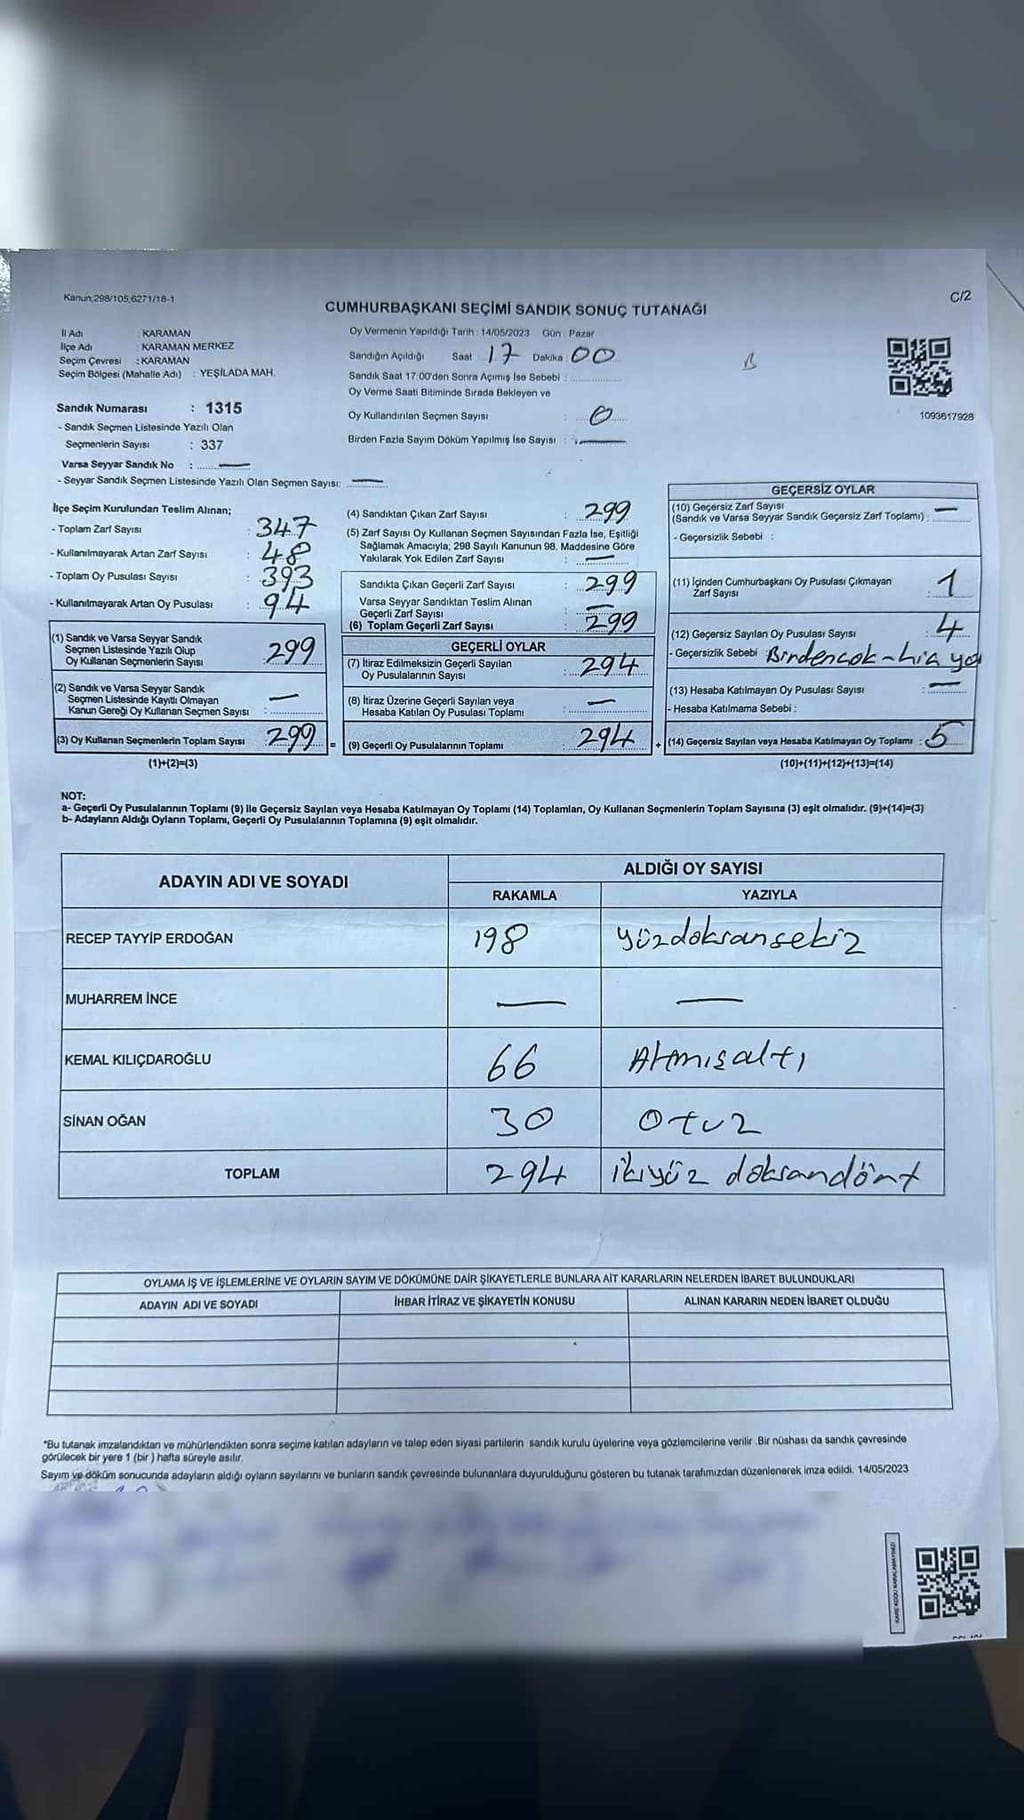 Kanun;298/105,6271/18-1
C/2
CUMHURBAŞKANI SEÇİMİ SANDIK SONUÇ TUTANAĞI
İl Adı : KARAMAN
İlçe Adı : KARAMAN MERKEZ
Seçim Çevresi : KARAMAN
Seçim Bölgesi (Mahalle Adı) : YEŞİLADA MAH.
Sandık Numarası : 1315
- Sandık Seçmen Listesinde Yazılı Olan
Seçmenlerin Sayısı : 337
Varsa Seyyar Sandık No : —
- Seyyar Sandık Seçmen Listesinde Yazılı Olan Seçmen Sayısı: —
Oy Vermenin Yapıldığı Tarih : 14/05/2023 Gün : Pazar
Sandığın Açıldığı Saat : 17 Dakika : 00
Sandık Saat 17:00'den Sonra Açımış İse Sebebi :
Oy Verme Saati Bitiminde Sırada Bekleyen ve
Oy Kullandırılan Seçmen Sayısı : 0
Birden Fazla Sayım Döküm Yapılmış İse Sayısı : —
1093617928
İlçe Seçim Kurulundan Teslim Alınan;
- Toplam Zarf Sayısı : 347
- Kullanılmayarak Artan Zarf Sayısı : 48
- Toplam Oy Pusulası Sayısı : 393
- Kullanılmayarak Artan Oy Pusulası : 94
(1) Sandık ve Varsa Seyyar Sandık
Seçmen Listesinde Yazılı Olup
Oy Kullanan Seçmenlerin Sayısı : 299
(2) Sandık ve Varsa Seyyar Sandık
Seçmen Listesinde Kayıtlı Olmayan
Kanun Gereği Oy Kullanan Seçmen Sayısı : —
(3) Oy Kullanan Seçmenlerin Toplam Sayısı : 299 =
(1)+(2)=(3)
(4) Sandıktan Çıkan Zarf Sayısı : 299
(5) Zarf Sayısı Oy Kullanan Seçmen Sayısından Fazla İse, Eşitliği
Sağlamak Amacıyla; 298 Sayılı Kanunun 98. Maddesine Göre
Yakılarak Yok Edilen Zarf Sayısı : —
Sandıkta Çıkan Geçerli Zarf Sayısı : 299
Varsa Seyyar Sandıktan Teslim Alınan
Geçerli Zarf Sayısı : —
(6) Toplam Geçerli Zarf Sayısı : 299
GEÇERLİ OYLAR
(7) İtiraz Edilmeksizin Geçerli Sayılan
Oy Pusulalarının Sayısı : 294
(8) İtiraz Üzerine Geçerli Sayılan veya
Hesaba Katılan Oy Pusulası Toplamı : —
(9) Geçerli Oy Pusulalarının Toplamı : 294 +
GEÇERSİZ OYLAR
(10) Geçersiz Zarf Sayısı
(Sandık ve Varsa Seyyar Sandık Geçersiz Zarf Toplamı) : —
- Geçersizlik Sebebi :
(11) İçinden Cumhurbaşkanı Oy Pusulası Çıkmayan
Zarf Sayısı : 1
(12) Geçersiz Sayılan Oy Pusulası Sayısı : 4
- Geçersizlik Sebebi : Birdencok-hiç
(13) Hesaba Katılmayan Oy Pusulası Sayısı : —
- Hesaba Katılmama Sebebi :
(14) Geçersiz Sayılan veya Hesaba Katılmayan Oy Toplamı : 5
(10)+(11)+(12)+(13)=(14)
NOT:
a- Geçerli Oy Pusulalarının Toplamı (9) ile Geçersiz Sayılan veya Hesaba Katılmayan Oy Toplamı (14) Toplamları, Oy Kullanan Seçmenlerin Toplam Sayısına (3) eşit olmalıdır. (9)+(14)=(3)
b- Adayların Aldığı Oyların Toplamı, Geçerli Oy Pusulalarının Toplamına (9) eşit olmalıdır.
ADAYIN ADI VE SOYADI
ALDIĞI OY SAYISI
RAKAMLA YAZIYLA
RECEP TAYYİP ERDOĞAN 198 yüzdoksansekiz
MUHARREM İNCE — —
KEMAL KILIÇDAROĞLU 66 Atmışaltı
SİNAN OĞAN 30 Otuz
TOPLAM 294 ikiyüz doksandört
OYLAMA İŞ VE İŞLEMLERİNE VE OYLARIN SAYIM VE DÖKÜMÜNE DAİR ŞİKAYETLERLE BUNLARA AİT KARARLARIN NELERDEN İBARET BULUNDUKLARI
ADAYIN ADI VE SOYADI İHBAR İTİRAZ VE ŞİKAYETİN KONUSU ALINAN KARARIN NEDEN İBARET OLDUĞU
*Bu tutanak imzalandıktan ve mühürlendikten sonra seçime katılan adayların ve talep eden siyasi partilerin sandık kurulu üyelerine veya gözlemcilerine verilir .Bir nüshası da sandık çevresinde
görülecek bir yere 1 (bir ) hafta süreyle asılır.
Sayım ve döküm sonucunda adayların aldığı oyların sayılarını ve bunların sandık çevresinde bulunanlara duyurulduğunu gösteren bu tutanak tarafımızdan düzenlenerek imza edildi. 14/05/2023